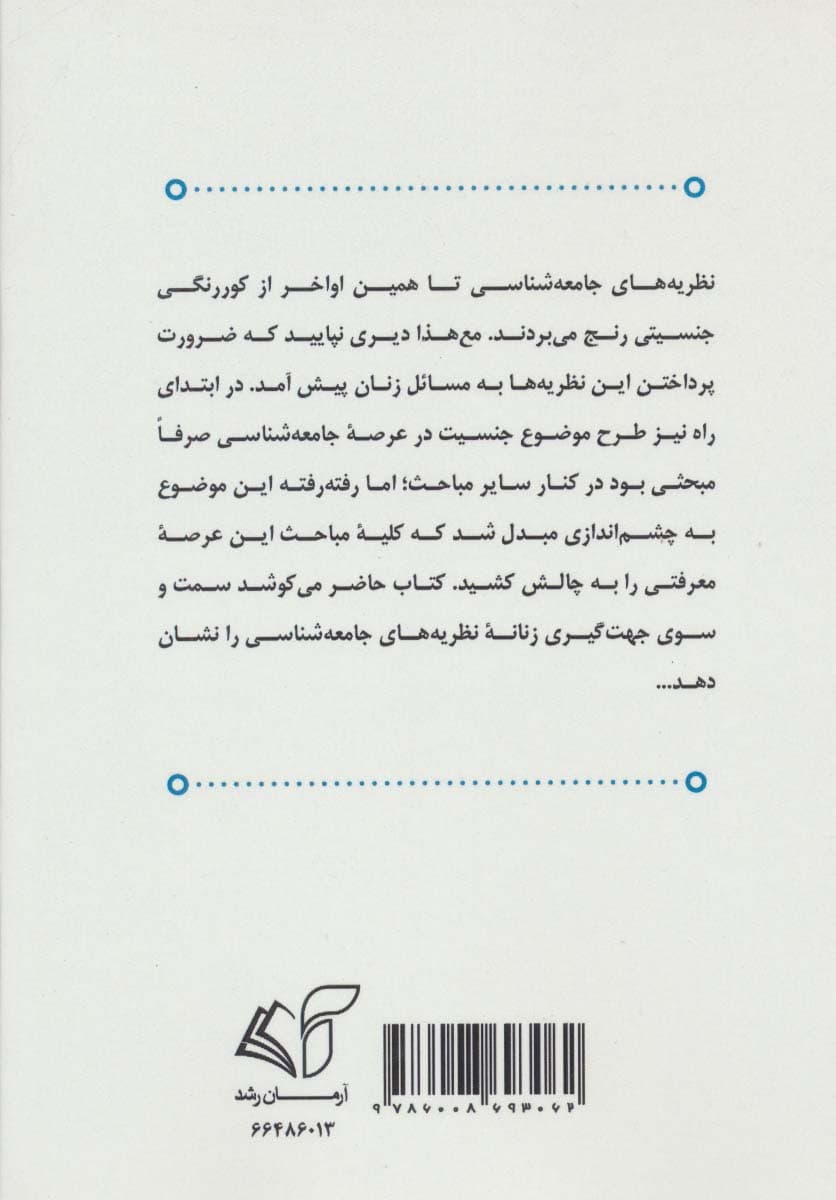 نظریه‌های جامعه‌شناسی تا همین اواخر از کوررنگی
جنسیتی رنج می‌بردند. مع‌هذا دیری نپایید که ضرورت
پرداختن این نظریه‌ها به مسائل زنان پیش آمد. در ابتدای
راه نیز طرح موضوع جنسیت در عرصهٔ جامعه‌شناسی صرفاً
مبحثی بود در کنار سایر مباحث؛ اما رفته‌رفته این موضوع
به چشم‌اندازی مبدل شد که کلیهٔ مباحث این عرصهٔ
معرفتی را به چالش کشید. کتاب حاضر می‌کوشد سمت و
سوی جهت‌گیری زنانهٔ نظریه‌های جامعه‌شناسی را نشان
دهد...
آرمان رشد
۶۶۴۸۶۰۱۳
۹ ۷۸۶۰۰۸ ۶۹۳۰۶۲